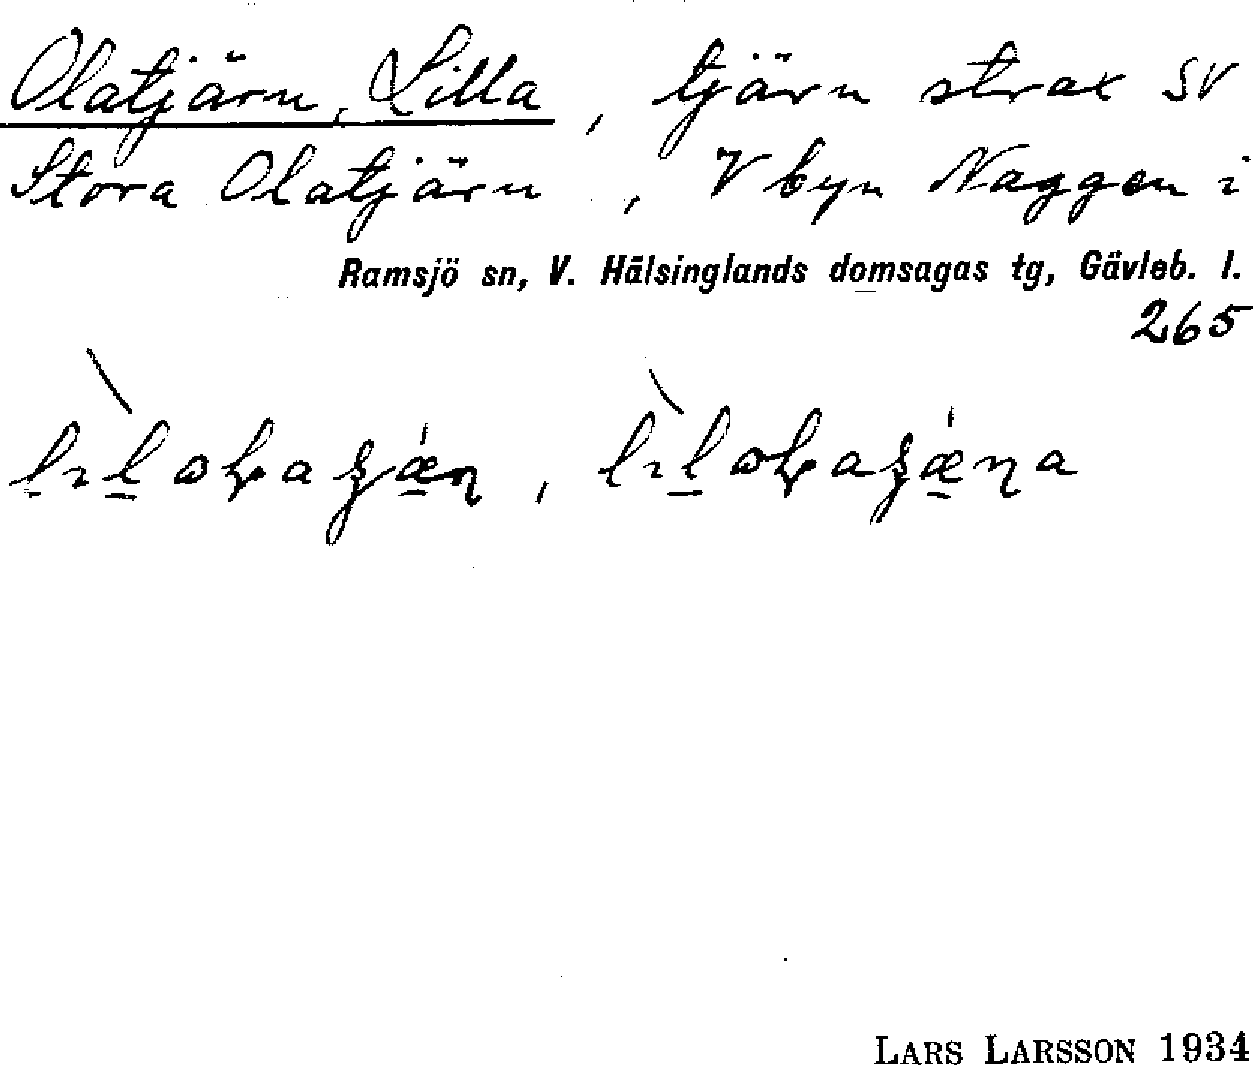 Olatjärn, Lilla, tjärn strax SV
Stora Olatjärn, V byn Naggen i
Ramsjö sn, V. Hälsinglands domsagas tg, Gävleb. l.
265
LARS LARSSON 1934